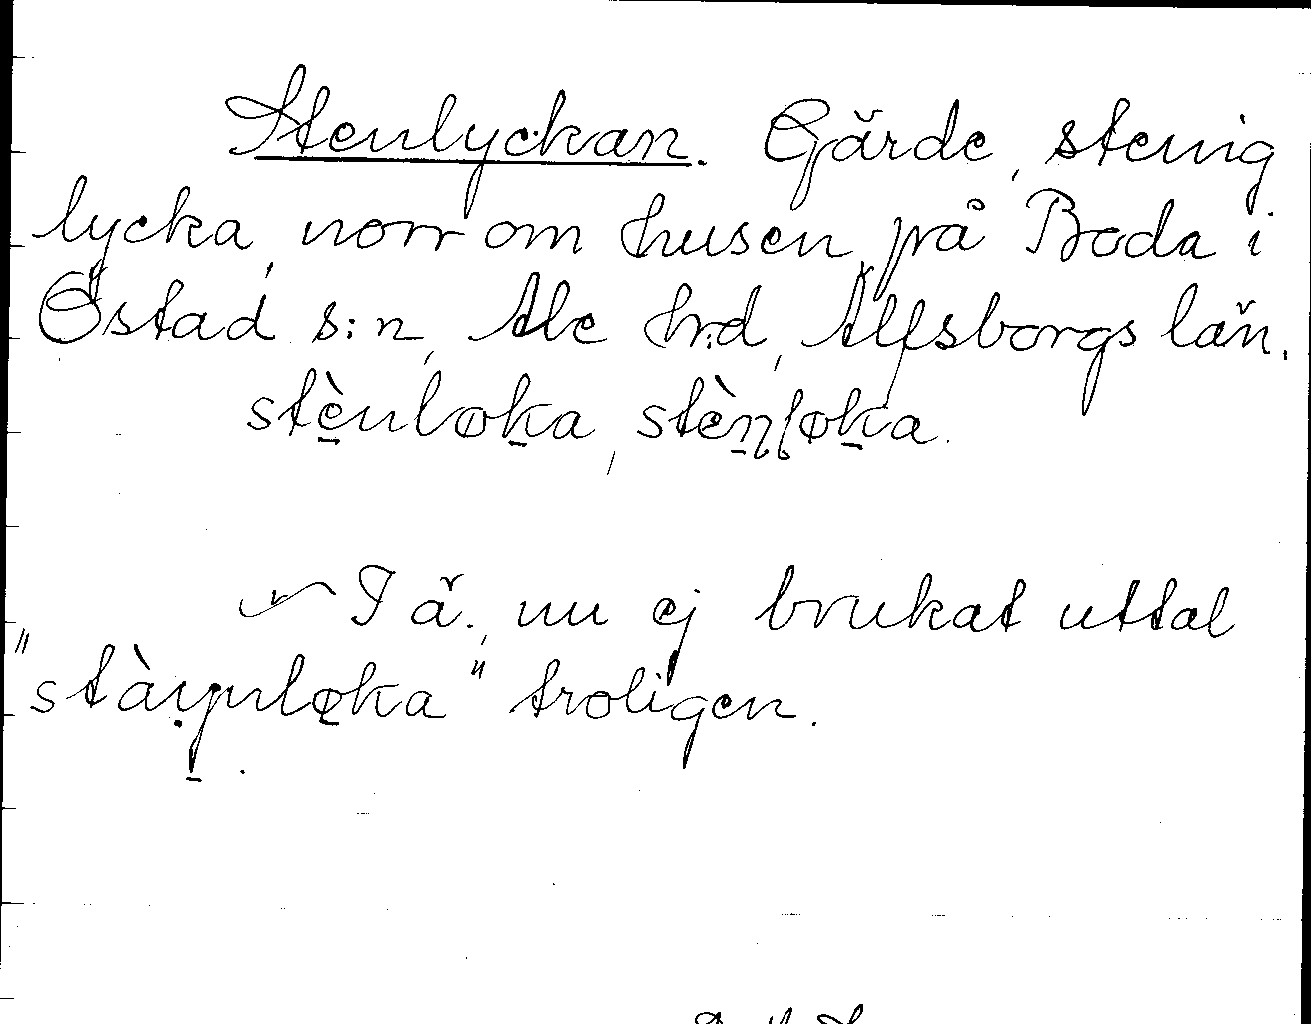 Stenlyckan. Gärde, stenig
lycka, norr om husen på Boda i
Östad s:n, Ale hrd, Älfsborgs län.
stènløka, stèn̥ løka.
I ä., nu ej brukat uttal
"stàinløka" troligen.